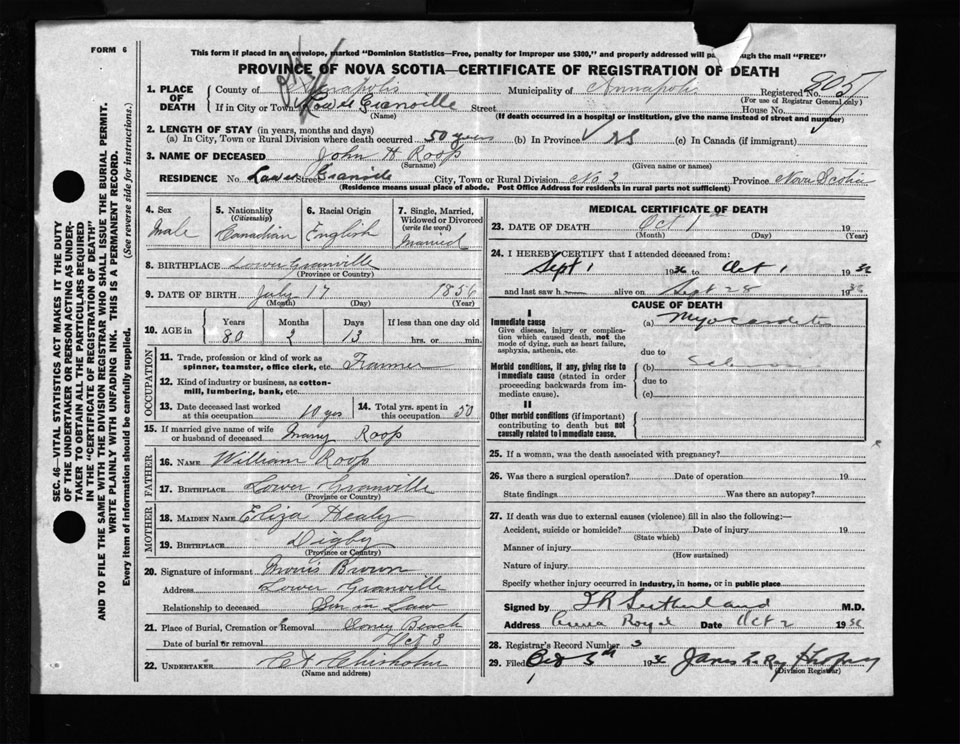 FORM 6
This form if placed in an envelope, marked "Dominion Statistics—Free, penalty for improper use $300," and properly addressed will pass through the mail "FREE"
PROVINCE OF NOVA SCOTIA—CERTIFICATE OF REGISTRATION OF DEATH
SEC. 46—VITAL STATISTICS ACT MAKES IT THE DUTY
OF THE UNDERTAKER OR PERSON ACTING AS UNDER-
TAKER TO OBTAIN ALL THE PARTICULARS REQUIRED
IN THE "CERTIFICATE OF REGISTRATION OF DEATH"
AND TO FILE THE SAME WITH THE DIVISION REGISTRAR WHO SHALL ISSUE THE BURIAL PERMIT.
WRITE PLAINLY WITH UNFADING INK. THIS IS A PERMANENT RECORD.
Every item of information should be carefully supplied. (See reverse side for instructions.)
1. PLACE OF DEATH
County of Annapolis Municipality of Annapolis Registered No. 905
(For use of Registrar General only)
If in City or Town Lower Granville Street House No.
(Name) (If death occurred in a hospital or institution, give the name instead of street and number)
2. LENGTH OF STAY (in years, months and days)
(a) In City, Town or Rural Division where death occurred 50 years (b) In Province NS (c) In Canada (if immigrant)
3. NAME OF DECEASED John H Roop
(Surname) (Given name or names)
RESIDENCE No. Lower Street Granville City, Town or Rural Division No 2 Province Nova Scotia
(Residence means usual place of abode. Post Office Address for residents in rural parts not sufficient)
4. Sex Male
5. Nationality (Citizenship) Canadian
6. Racial Origin English
7. Single, Married, Widowed or Divorced (write the word) Married
8. BIRTHPLACE Lower Granville
(Province or Country)
9. DATE OF BIRTH July 17 1856
(Month) (Day) (Year)
10. AGE in Years 80 Months 2 Days 13 If less than one day old hrs. or min.
OCCUPATION
11. Trade, profession or kind of work as spinner, teamster, office clerk, etc. Farmer
12. Kind of industry or business, as cotton-mill, lumbering, bank, etc.
13. Date deceased last worked at this occupation 10 yrs
14. Total yrs. spent in this occupation 50
15. If married give name of wife or husband of deceased Mary Roop
FATHER
16. NAME William Roop
17. BIRTHPLACE Lower Granville
(Province or Country)
MOTHER
18. MAIDEN NAME Eliza Healy
19. BIRTHPLACE Digby
(Province or Country)
20. Signature of informant Morris Brown
Address Lower Granville
Relationship to deceased Son in Law
21. Place of Burial, Cremation or Removal Beach
Date of burial or removal Oct 3
22. UNDERTAKER Chisholm
(Name and address)
MEDICAL CERTIFICATE OF DEATH
23. DATE OF DEATH Oct 1 19
(Month) (Day) (Year)
24. I HEREBY CERTIFY that I attended deceased from:
Sept 1 1936 to Oct 1 1936
and last saw h alive on Sept 28 1936
CAUSE OF DEATH
I
Immediate cause (a) Myocarditis
Give disease, injury or complication which caused death, not the mode of dying, such as heart failure, asphyxia, asthenia, etc.
due to
Morbid conditions, if any, giving rise to immediate cause (stated in order proceeding backwards from immediate cause). (b)
due to
(c)
II
Other morbid conditions (if important) contributing to death but not causally related to immediate cause.
25. If a woman, was the death associated with pregnancy?
26. Was there a surgical operation? Date of operation 19
State findings Was there an autopsy?
27. If death was due to external causes (violence) fill in also the following:—
Accident, suicide or homicide? Date of injury 19
(State which)
Manner of injury
(How sustained)
Nature of injury
Specify whether injury occurred in industry, in home, or in public place
Signed by Sutherland M.D.
Address Anna Royal Date Oct 2 1936
28. Registrar's Record Number 3
29. Filed 5th 1936 James
(Division Registrar)